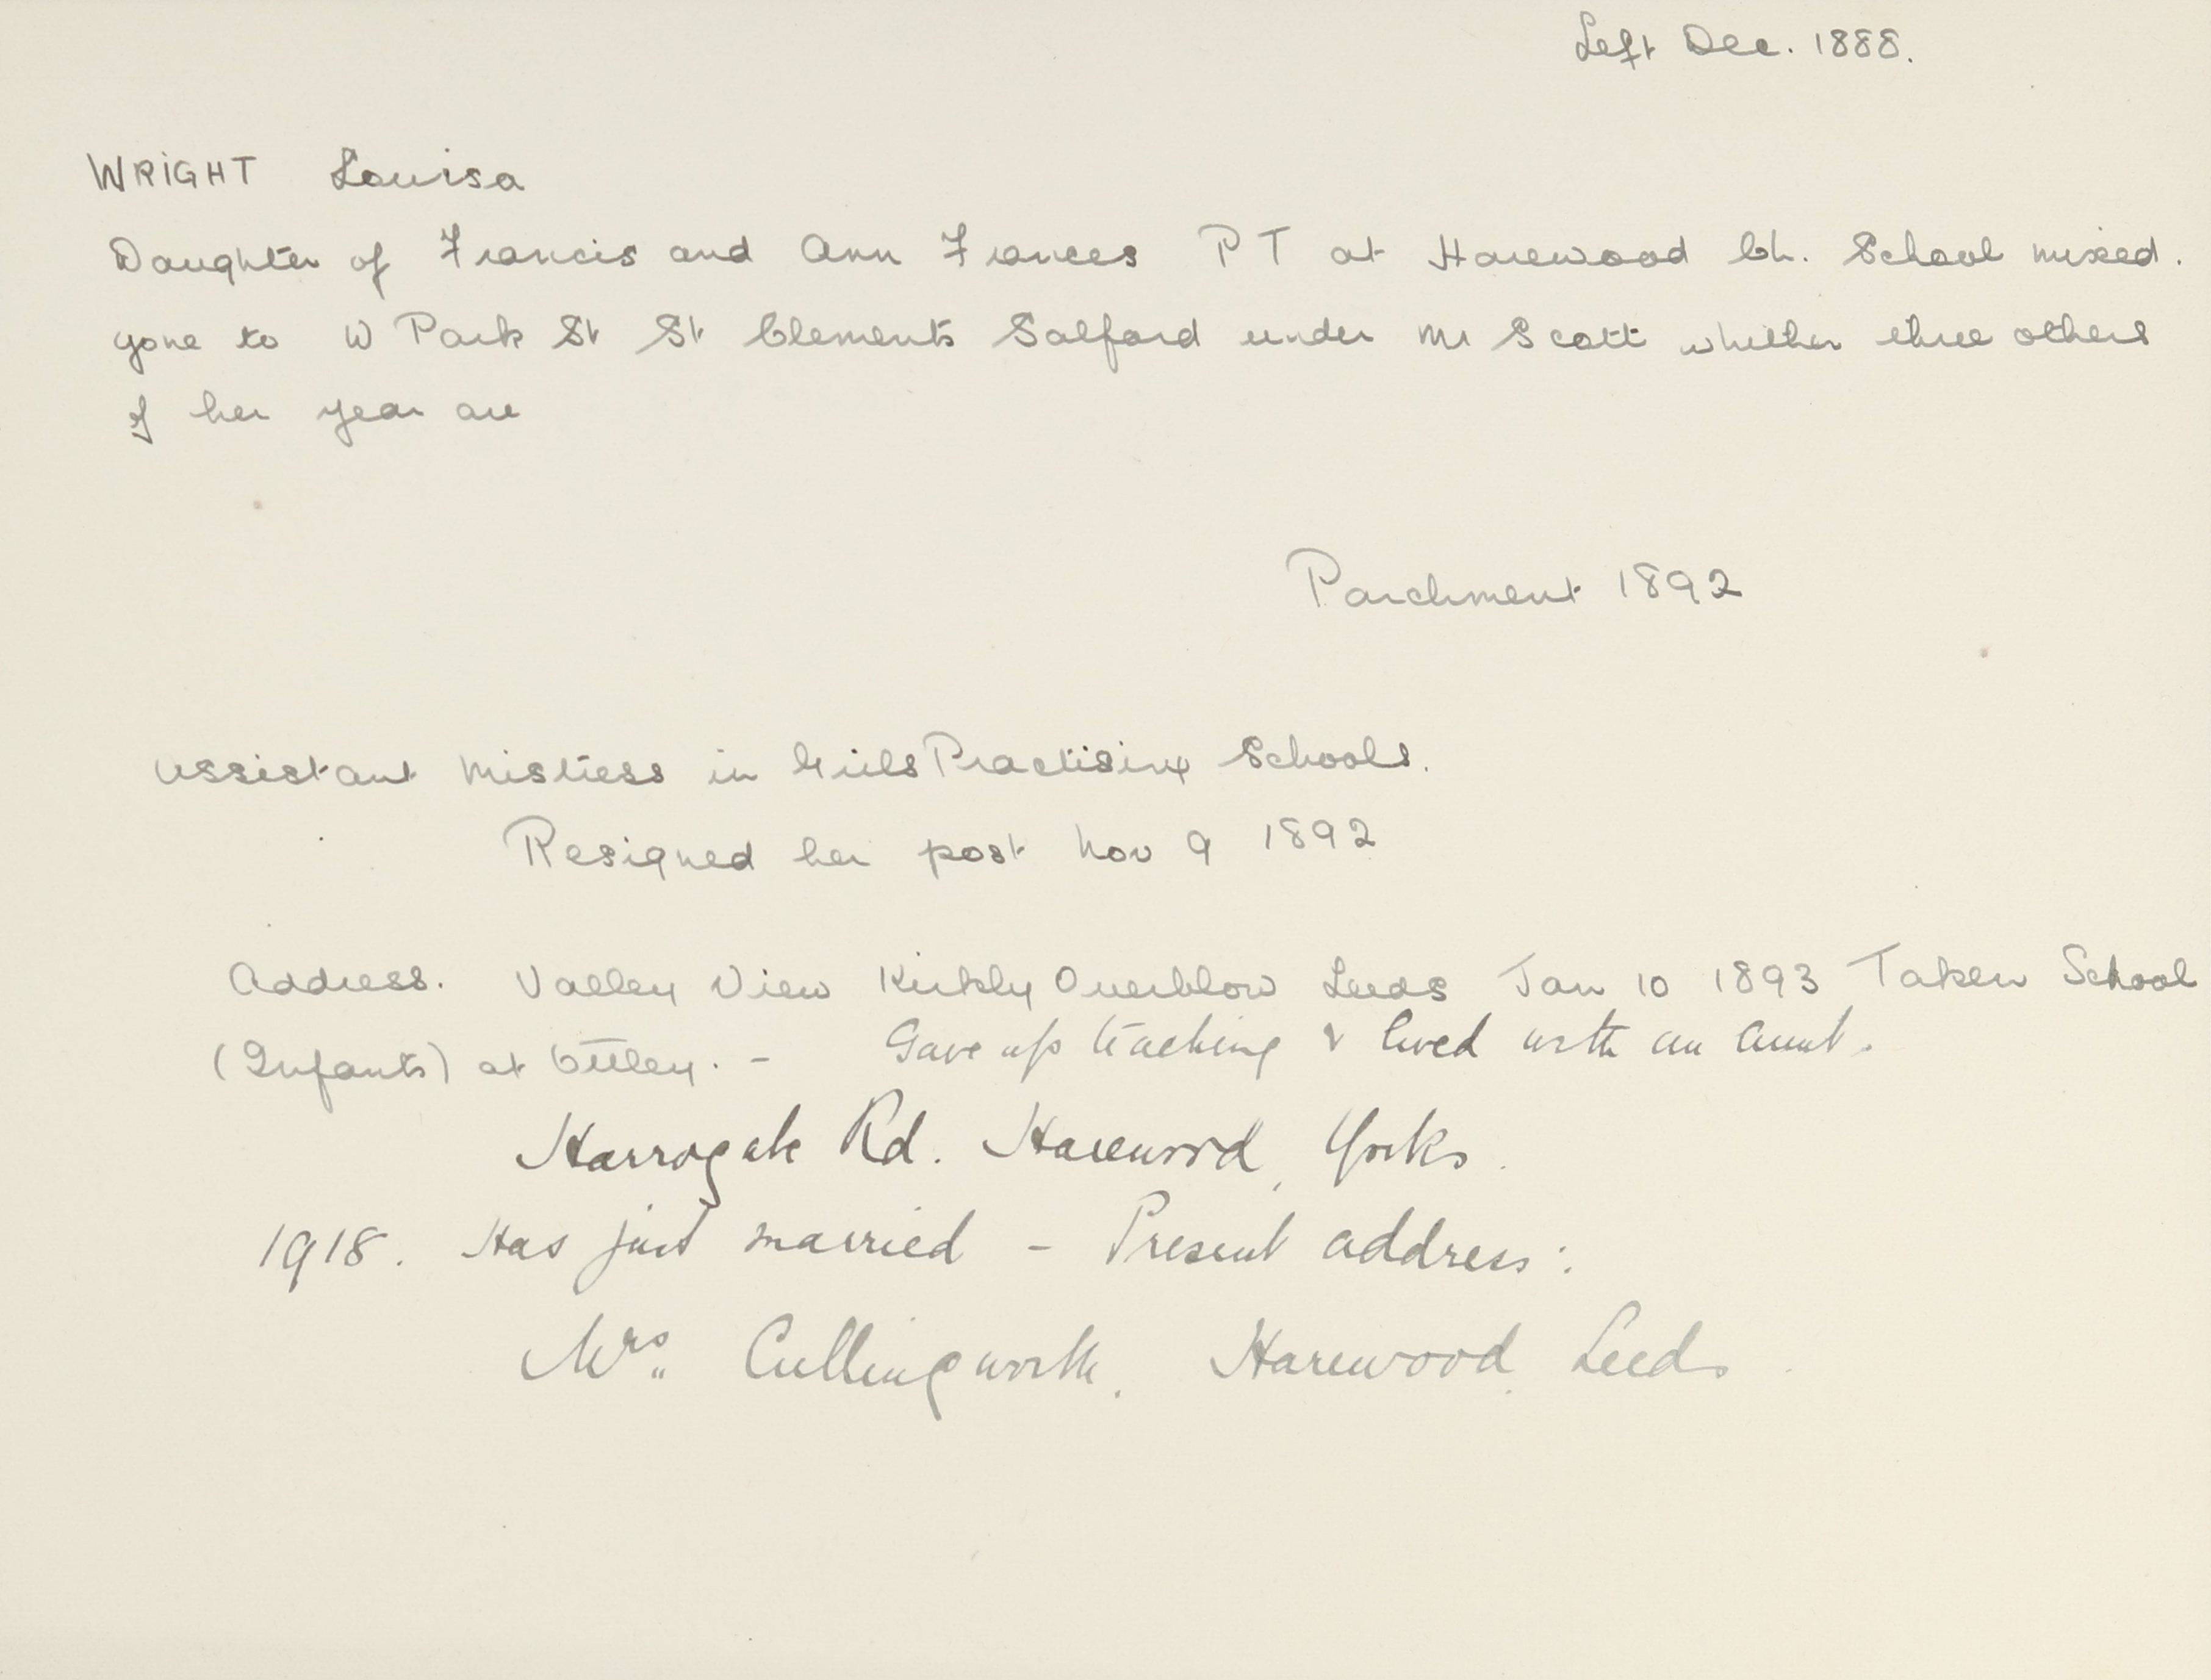 Left Dec. 1888.
WRIGHT Louisa
Daughter of Francis and Ann Frances P T at Harewood Ch. School mixed.
gone to W Park St St Clements Salford under Mr Scott whither three others
of her year are
Parchment 1892
Assistant Mistress in Girls Practising Schools.
Resigned her post Nov 9 1892
Address. Valley View Kirkby Overblow Leeds Jan 10 1893 Taken School
(Infants) at Ottley. - Gave up teaching & lived with an aunt.
Harrogate Rd. Harewood, Yorks.
1918. Has just married - Present address:
Mrs. Cullingworth, Harewood, Leeds.